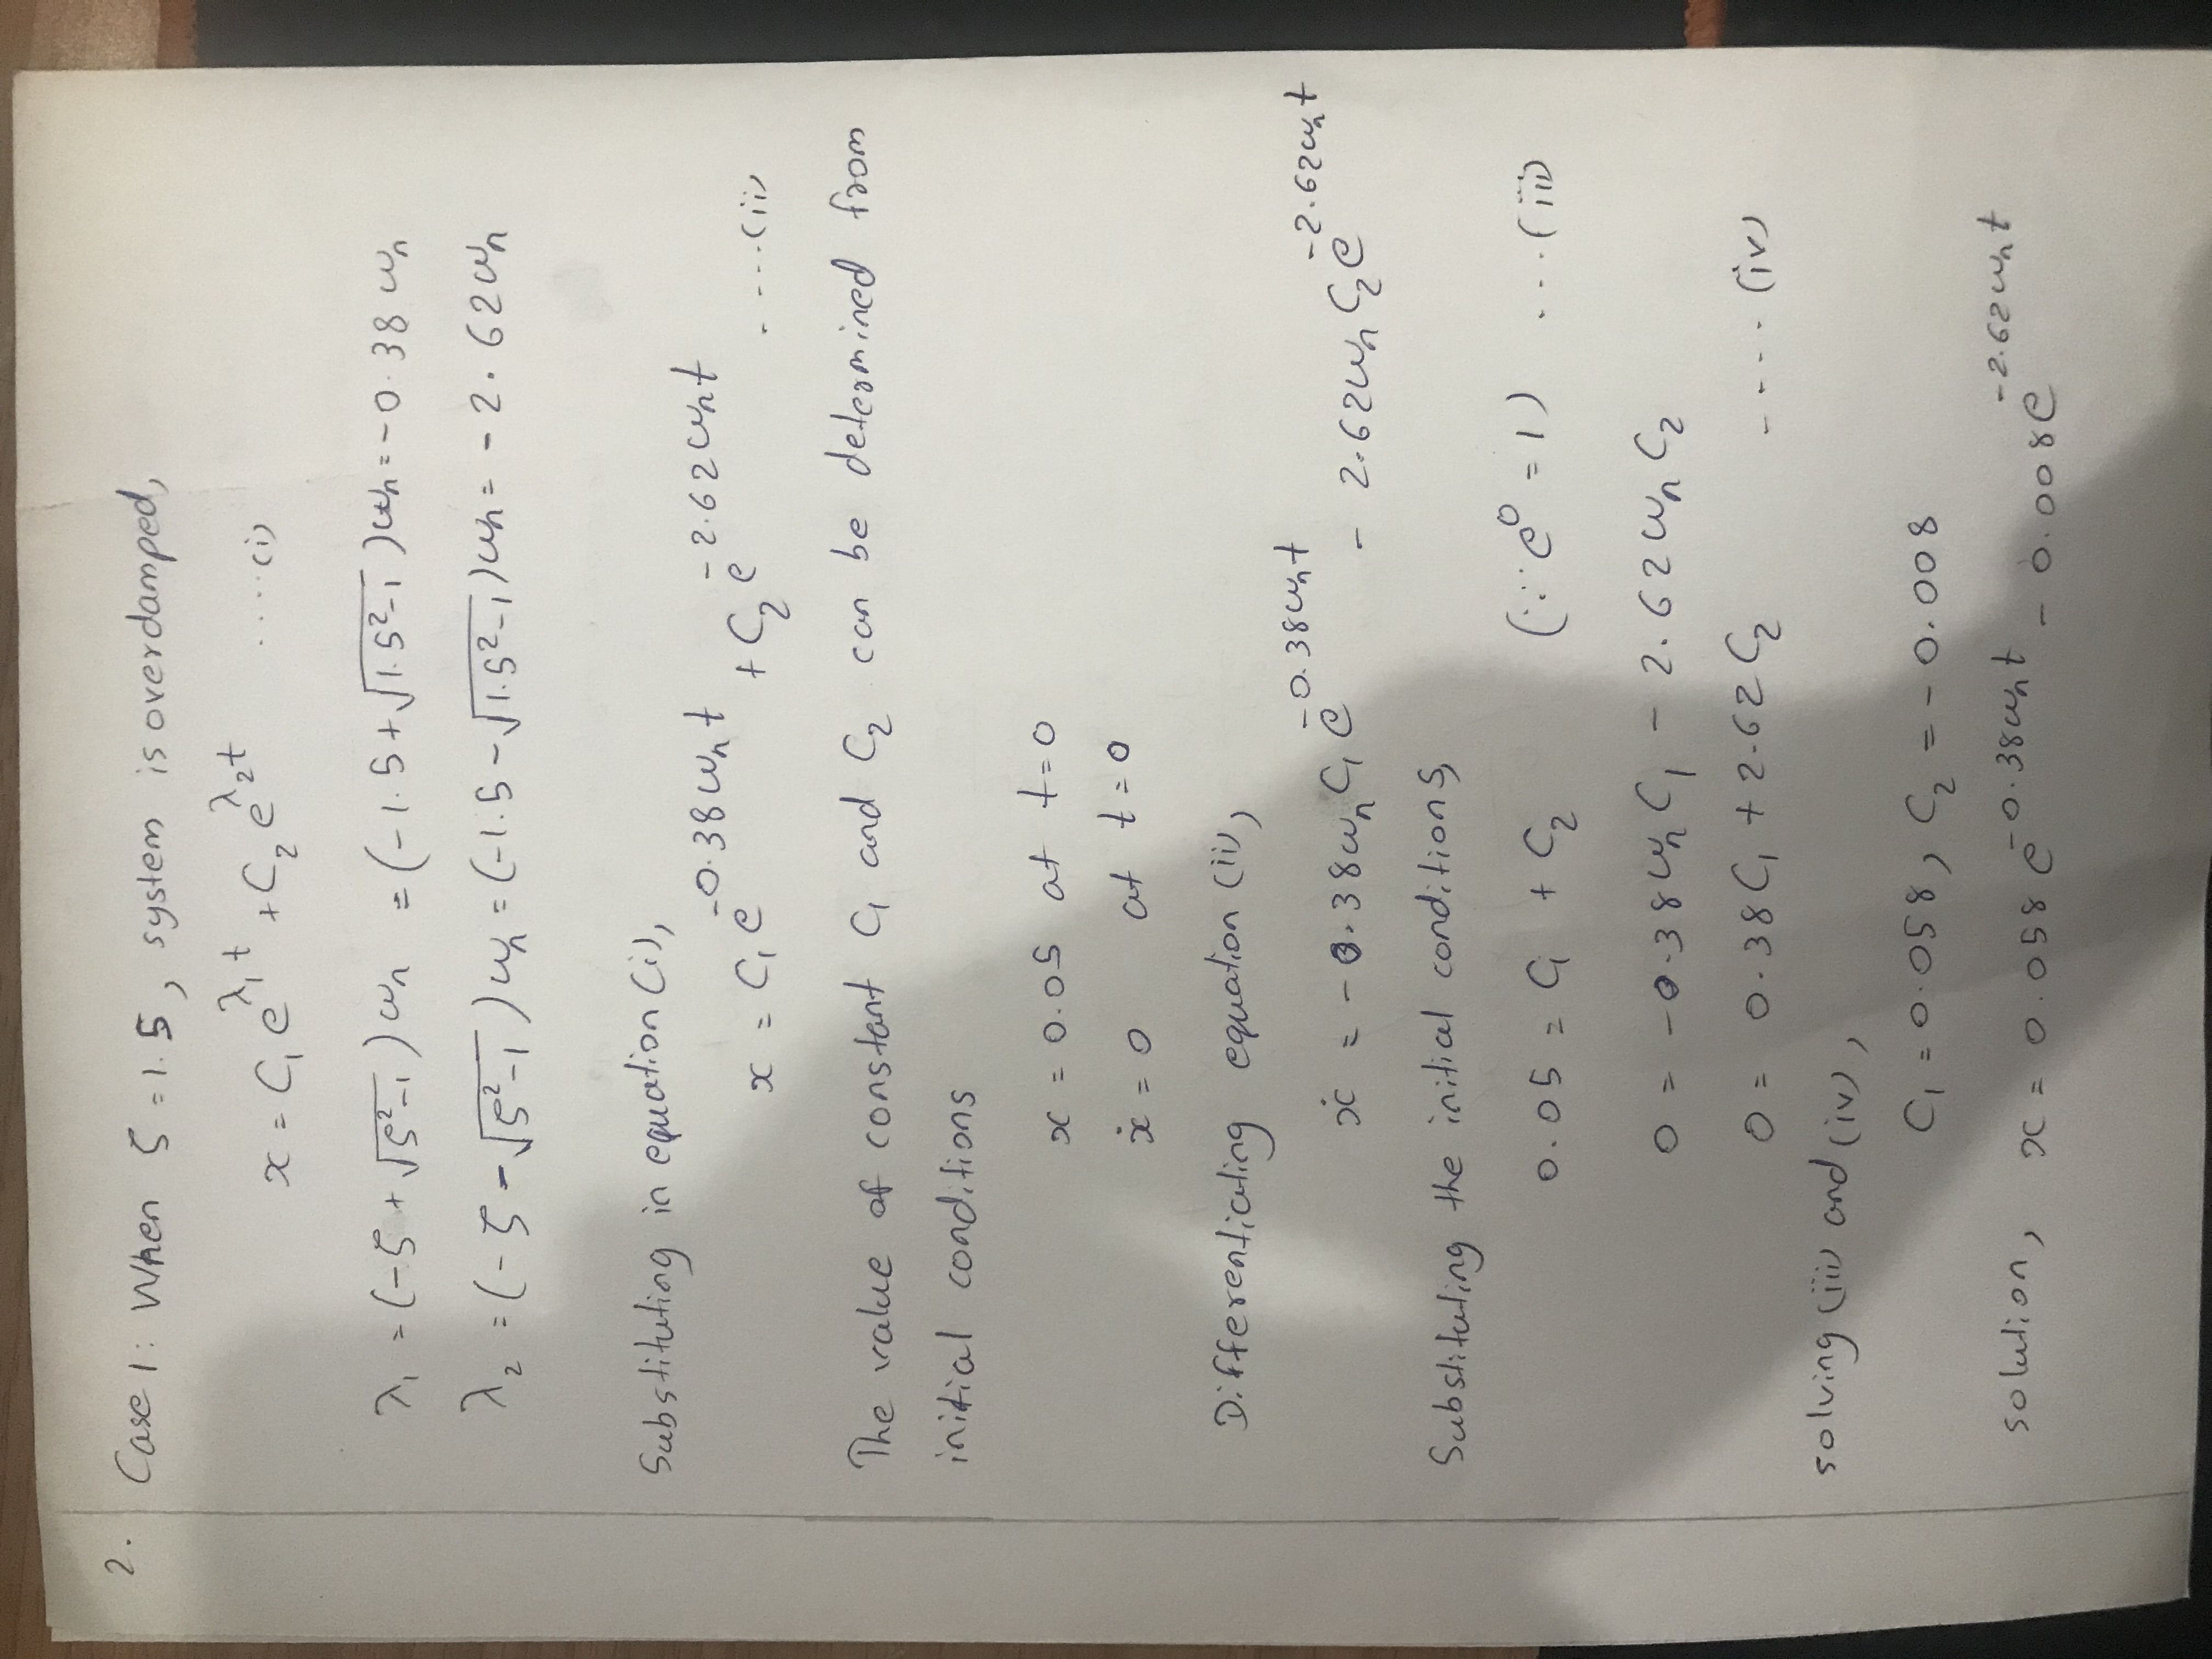 2. Case 1: When ζ = 1.5, system is overdamped,
x = C₁ e^λ₁t + C₂ e^λ₂t ....(i)
λ₁ = (-ζ + √ζ²-1) ωn = (-1.5 + √1.5²-1) ωn = -0.38 ωn
λ₂ = (-ζ - √ζ²-1) ωn = (-1.5 - √1.5²-1) ωn = -2.62 ωn
Substituting in equation (i),
x = C₁ e^-0.38ωnt + C₂ e^-2.62ωnt ....(ii)
The value of constant C₁ and C₂ can be determined from
initial conditions
x = 0.05 at t=0
ẋ = 0 at t=0
Differentiating equation (ii),
ẋ = -0.38ωn C₁ e^-0.38ωnt - 2.62ωn C₂ e^-2.62ωnt
Substituting the initial conditions,
0.05 = C₁ + C₂ (∵ e⁰ = 1) ...(iii)
0 = -0.38ωn C₁ - 2.62ωn C₂
0 = 0.38 C₁ + 2.62 C₂ ....(iv)
solving (iii) and (iv),
C₁ = 0.058, C₂ = -0.008
solution, x = 0.058 e^-0.38ωnt - 0.008 e^-2.62ωnt